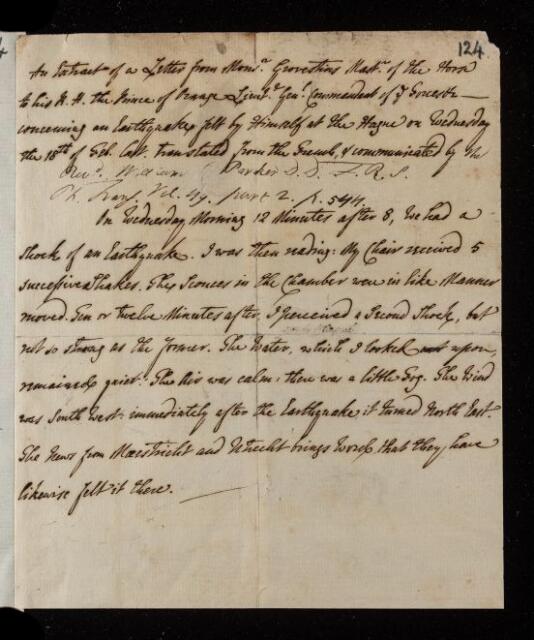 124
An Extract of a Letter from Monsr. Grovestins Mastr. of the Horse
to his R. H. the Prince of Orange Lieut. Genl. Commandant of ye Forces
concerning an Earthquake felt by Himself at the Hague on Wednesday
the 18th of Feb. last. translated from the French, & communicated by the
Revd. William Parker D.D. F.R.S.
Ph. Trans. Vol. 49. part 2. p. 544.
On Wednesday Morning 12 Minutes after 8, We had a
Shock of an Earthquake. I was then reading: My Chair received 5
successive Shakes. The Sconces in the Chamber were in like Manner
moved. Ten or twelve Minutes after, I perceived a Second Shock, but
not so strong as the former. The Water, which I looked upon,
remained quiet. The Air was calm: there was a little Fog. The Wind
was South West: immediately after the Earthquake it turned North East.
The News from Maestricht and Utrecht brings Word, that they have
likewise felt it there.